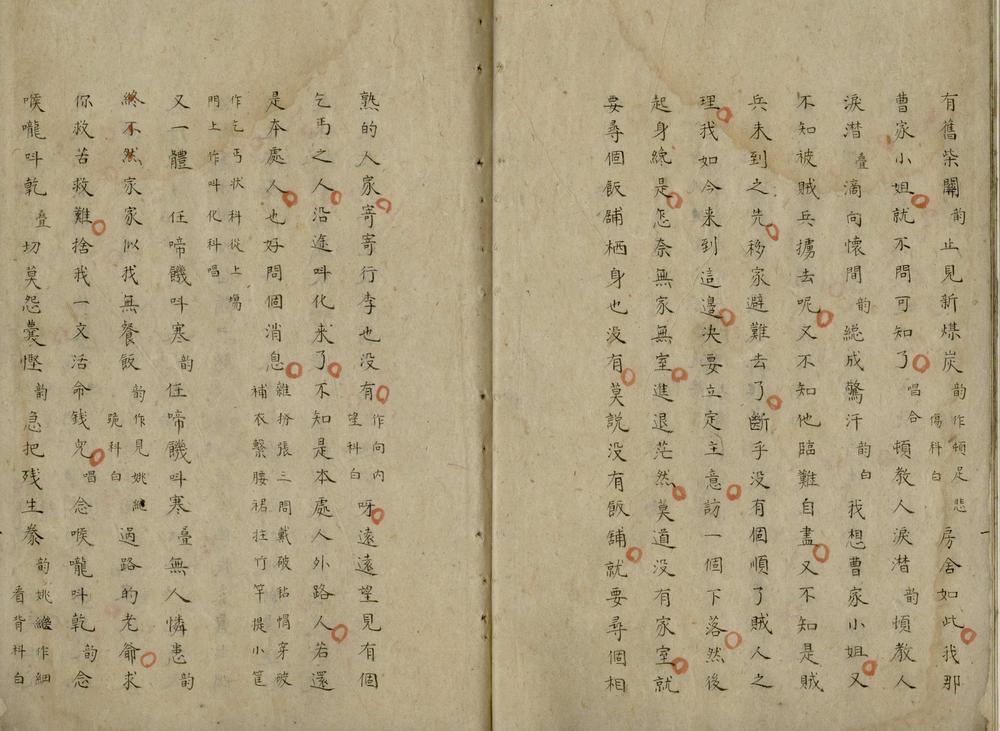 有舊柴關韵止見新煤炭韵作頓足悲傷科白房舍如此我那
曹家小姐就不問可知了唱合頓教人淚潸韵頓教人
淚潸疊滴向懷間韵總成驚汗韵白我想曹家小姐又
不知被賊兵擄去呢又不知他臨難自盡又不知是賊
兵未到之先移家避難去了斷乎没有個順了賊人之
理我如今来到這邊决要立定主意訪一個下落然後
起身纔是怎奈無家無室進退茫然莫道没有家室就
要尋個飯舖栖身也没有莫説没有飯舖就要尋個相
熟的人家寄寄行李也没有作向内望科白呀遠遠望見有個
乞丐之人沿途呌化来了不知是本處人外路人若還
是本處人也好問個消息雜扮張三問戴破毡帽穿破補衣繫腰裙拄竹竿提小筐
作乞丐狀科從上場門上作呌化科唱
又一體 任啼饑呌寒韵任啼饑呌寒疊無人憐恚韵
終不然家家似我無餐飯韵作見姚繼跪科白過路的老爺求
你救苦救難捨我一文活命钱兒唱念喉嚨呌乾韵念
喉嚨呌乾疊切莫怨囊慳韵急把残生豢韵姚繼作細看背科白